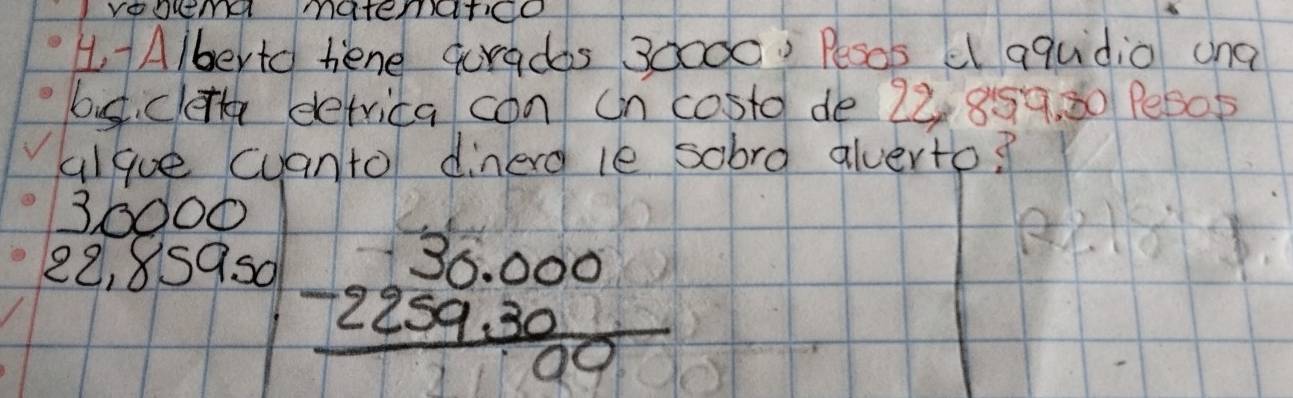 roblema matematico
4,-Alberto tiene gurados 30000 Pesos el aquidio una
bisicletta eletrica con un costo de 22,859.50 Pesos
alque cuanto dinero le sobro alverto?
30000
22,859.50
30.000
-2259.30
00